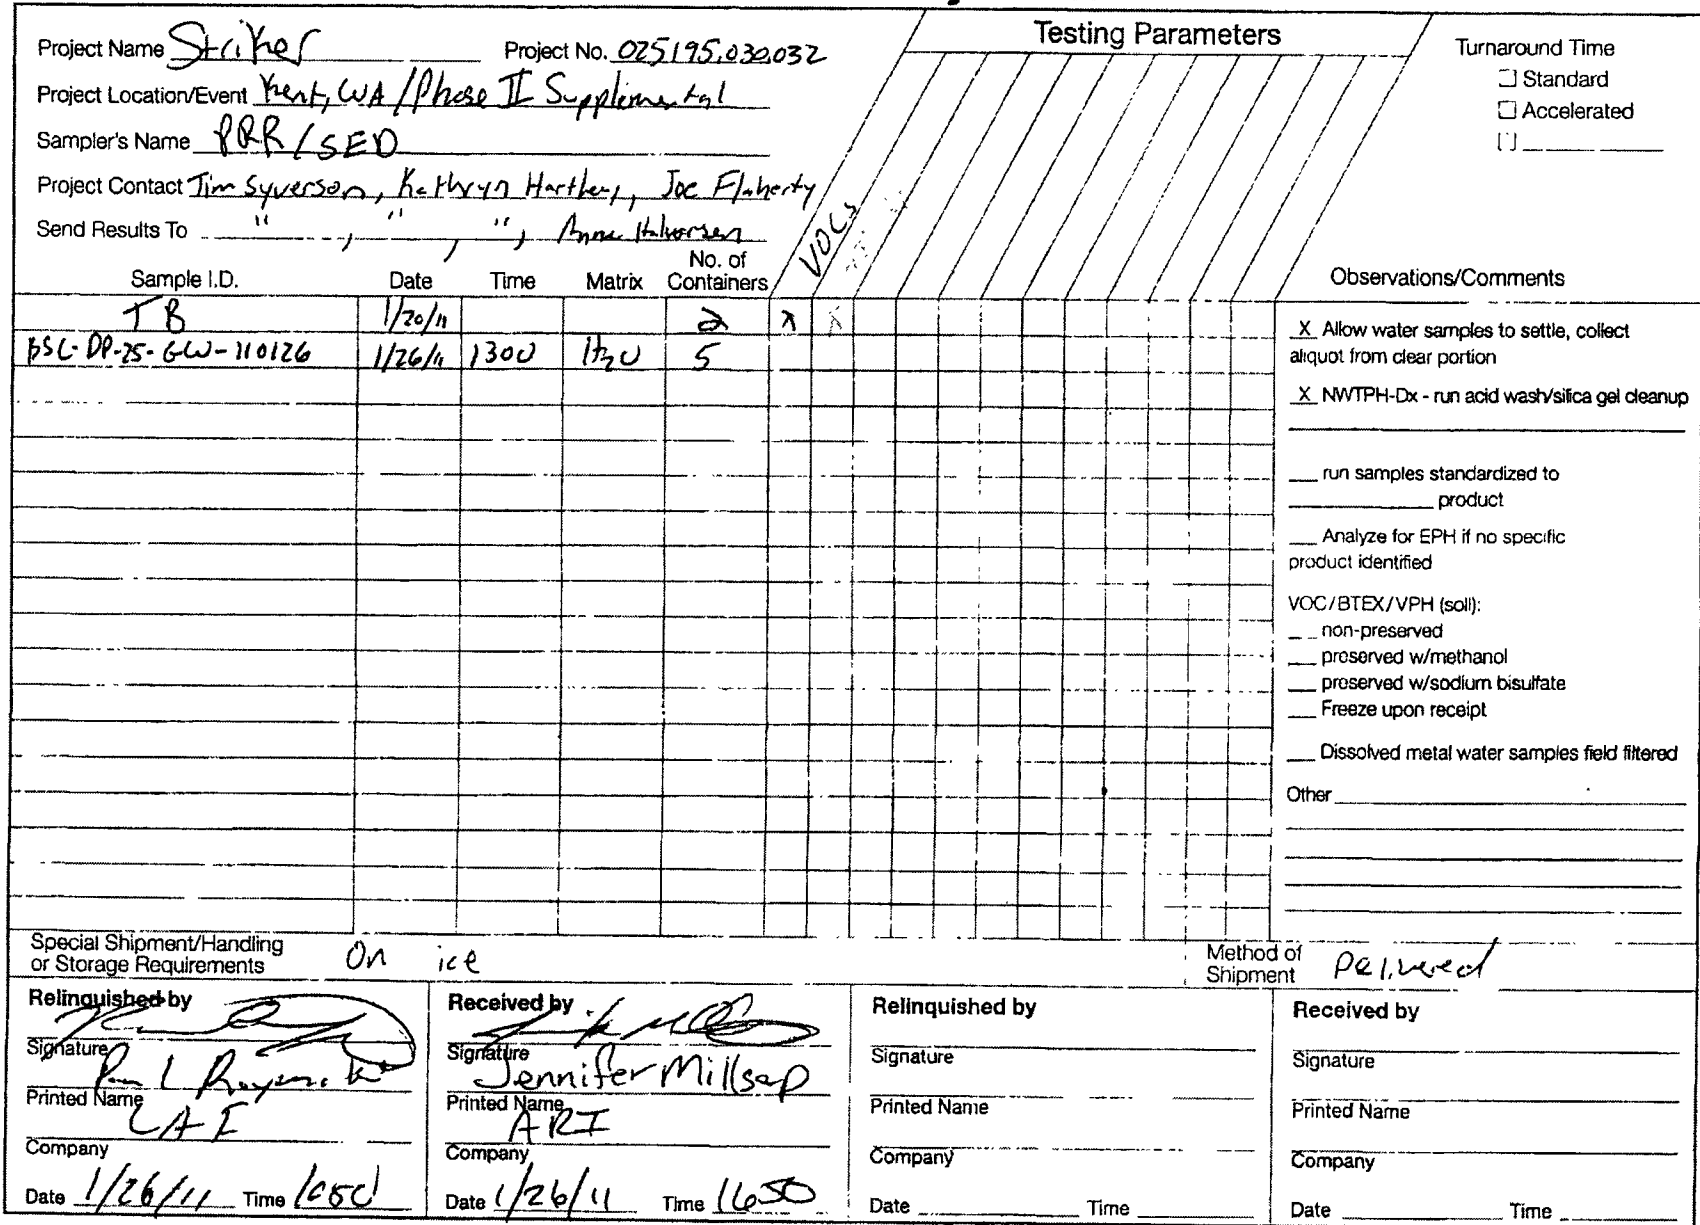 Testing Parameters
Project Name Striker Project No. 025195.030.032
Turnaround Time
Standard
Accelerated
Project Location/Event Kent, WA / Phase II Supplemental
Sampler's Name PRR / SED
Project Contact Tim Syverson, Kathryn Hartley, Joe Flaherty
Send Results To " , " , " , Anne Halvorsen
VOCs
Sample I.D. Date Time Matrix No. of Containers Observations/Comments
TB 1/20/11 2 X X
BSC-DP-25-GW-110126 1/26/11 1300 H2O 5
X Allow water samples to settle, collect
aliquot from clear portion
X NWTPH-Dx - run acid wash/silica gel cleanup
run samples standardized to
product
Analyze for EPH if no specific
product identified
VOC/BTEX/VPH (soil):
non-preserved
preserved w/methanol
preserved w/sodium bisulfate
Freeze upon receipt
Dissolved metal water samples field filtered
Other
Special Shipment/Handling
or Storage Requirements On ice
Method of
Shipment Delivered
Relinquished by
Signature
Paul
Printed Name
LAI
Company
Date 1/26/11 Time 1650
Received by
Signature
Jennifer Millsap
Printed Name
ARI
Company
Date 1/26/11 Time 1650
Relinquished by
Signature
Printed Name
Company
Date Time
Received by
Signature
Printed Name
Company
Date Time